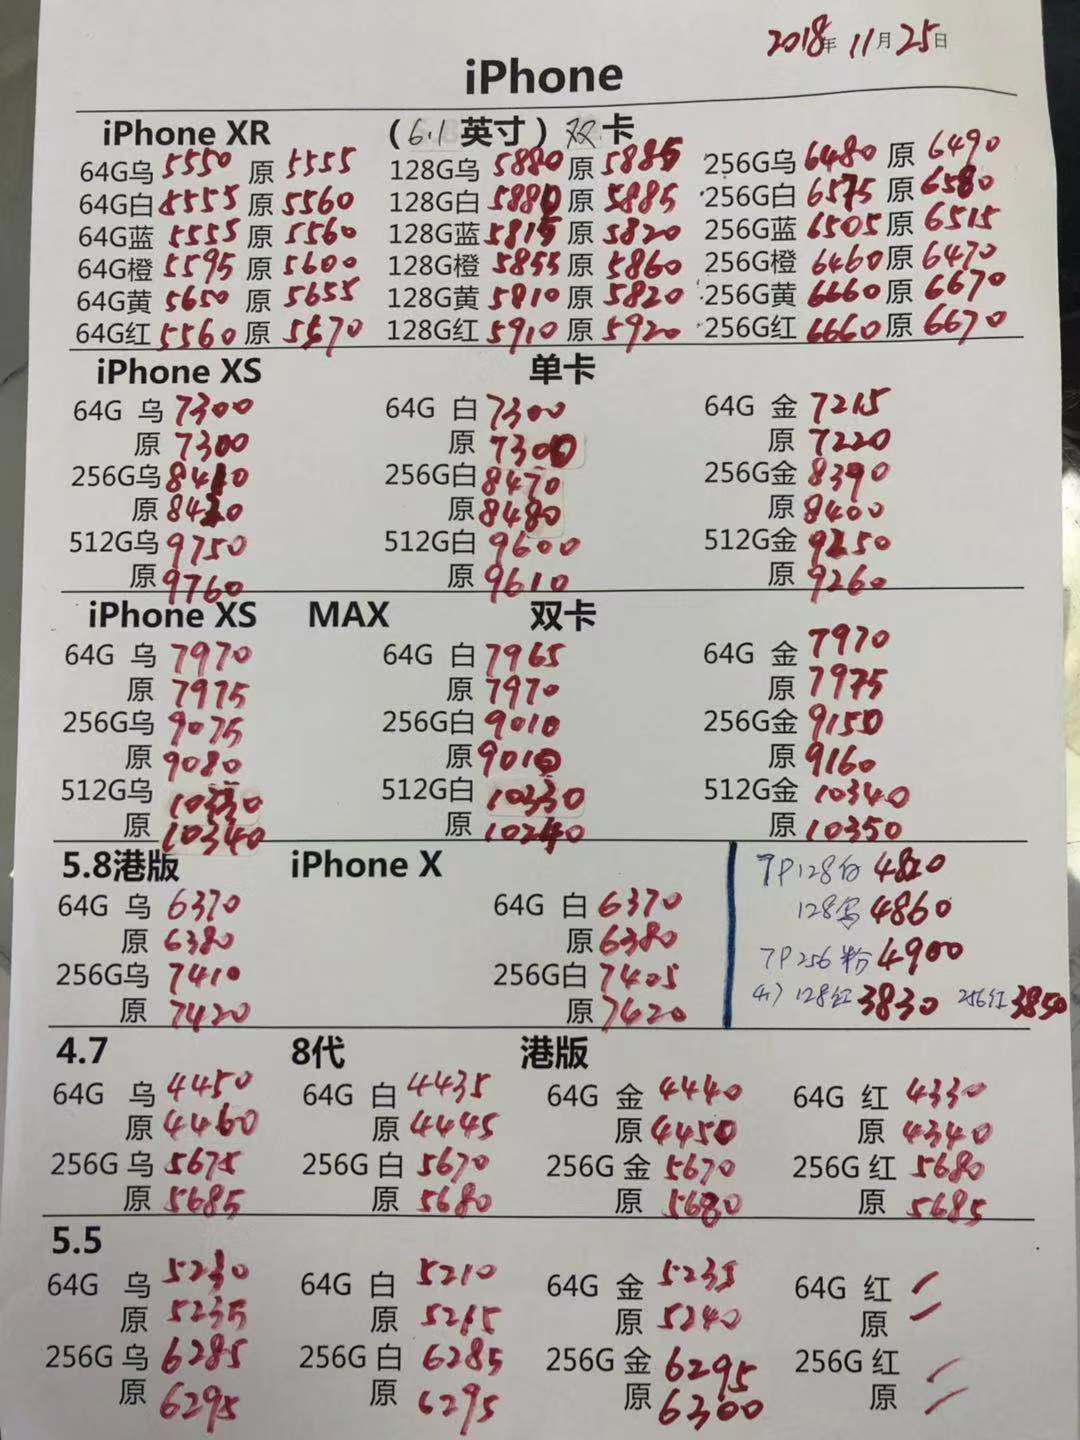 2018年 11月25日
iPhone
iPhone XR （6.1英寸）双卡
64G乌 5550 原 5555 128G乌 5880 原 5885 256G乌 6480 原 6490
64G白 5555 原 5560 128G白 5880 原 5885 256G白 6575 原 6580
64G蓝 5555 原 5560 128G蓝 5815 原 5820 256G蓝 6505 原 6515
64G橙 5595 原 5600 128G橙 5855 原 5860 256G橙 6460 原 6470
64G黄 5650 原 5655 128G黄 5810 原 5820 256G黄 6660 原 6670
64G红 5560 原 5570 128G红 5910 原 5920 256G红 6660 原 6670
iPhone XS 单卡
64G 乌 7300 64G 白 7300 64G 金 7215
原 7300 原 7300 原 7220
256G乌 8410 256G白 8470 256G金 8390
原 8420 原 8480 原 8400
512G乌 9750 512G白 9600 512G金 9250
原 9760 原 9610 原 9260
iPhone XS MAX 双卡
64G 乌 7970 64G 白 7965 64G 金 7970
原 7975 原 7970 原 7975
256G乌 9075 256G白 9010 256G金 9150
原 9080 原 9010 原 9160
512G乌 10330 512G白 10330 512G金 10340
原 10340 原 10240 原 10350
5.8港版 iPhone X 7P128白 4820
64G 乌 6370 64G 白 6370 128 4860
原 6380 原 6380 7P256粉 4900
256G乌 7410 256G白 7405 128红 3830 256红 3850
原 7420 原 7420
4.7 8代 港版
64G 乌 4450 64G 白 4435 64G 金 4440 64G 红 4330
原 4460 原 4445 原 4450 原 4340
256G 乌 5675 256G 白 5670 256G 金 5670 256G 红 5680
原 5685 原 5680 原 5680 原 5685
5.5
64G 乌 5230 64G 白 5210 64G 金 5235 64G 红
原 5235 原 5215 原 5240 原
256G 乌 6285 256G 白 6285 256G 金 6295 256G 红
原 6295 原 6295 原 6300 原